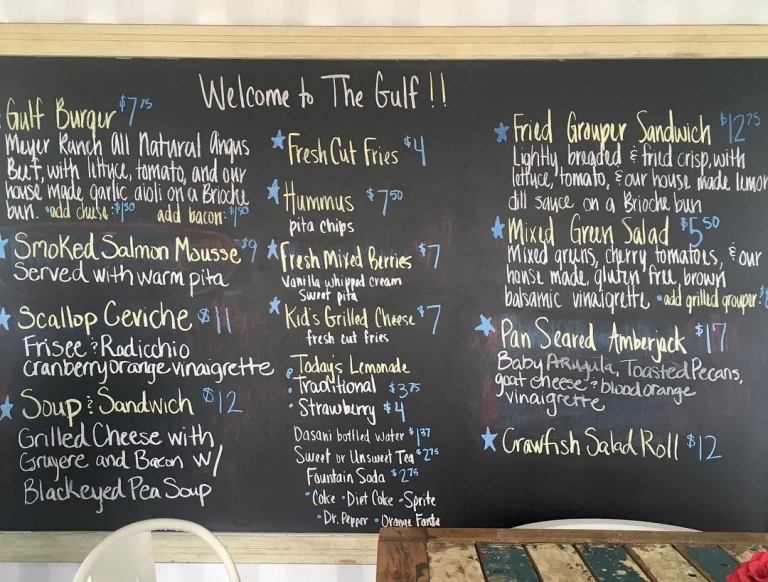 Welcome to The Gulf!!
Gulf Burger $7.75
Meyer Ranch All Natural Angus
Beef, with lettuce, tomato, and our
house made garlic aioli on a Brioche
bun. •add cheese: $1.50 add bacon: $1.50
Smoked Salmon Mousse $9
Served with warm pita
Scallop Ceviche $11
Frisee & Radicchio
cranberry orange vinaigrette
Soup & Sandwich $12
Grilled Cheese with
Gruyere and Bacon w/
Blackeyed Pea Soup
Fresh Cut Fries $4
Hummus $7.50
pita chips
Fresh Mixed Berries $7
Vanilla whipped cream
Sweet pita
Kid's Grilled Cheese $7
fresh cut fries
Today's Lemonade
• Traditional $3.75
• Strawberry $4
Dasani bottled water $1.37
Sweet or Unsweet Tea $2.75
Fountain Soda $2.75
•Coke •Diet Coke •Sprite
•Dr. Pepper •Orange Fanta
Fried Grouper Sandwich $12.75
Lightly breaded & fried crisp, with
lettuce, tomato, & our house made lemon
dill sauce on a Brioche bun
Mixed Green Salad $5.50
Mixed greens, cherry tomatoes, & our
house made, gluten free brown
balsamic vinaigrette •add grilled grouper:
Pan Seared Amberjack $17
Baby Arugula, Toasted Pecans,
goat cheese & blood orange
vinaigrette
Crawfish Salad Roll $12